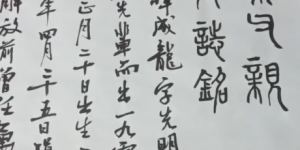 親
誌銘
成龍字先明
先輩而出一九
正月二十日出生
年四月二十五日
解放前曾任